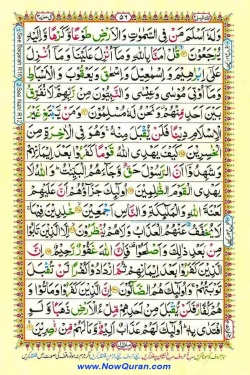 ۵۶
وَلَهٗۤ اَسْلَمَ مَنْ فِی السَّمٰوٰتِ وَالْاَرْضِ طَوْعًا وَّكَرْهًا وَّاِلَیْهِ
یُرْجَعُوْنَ قُلْ اٰمَنَّا بِاللّٰهِ وَمَاۤ اُنْزِلَ عَلَیْنَا وَمَاۤ اُنْزِلَ
عَلٰۤی اِبْرٰهِیْمَ وَاِسْمٰعِیْلَ وَاِسْحٰقَ وَیَعْقُوْبَ وَالْاَسْبَاطِ
وَمَاۤ اُوْتِیَ مُوْسٰی وَعِیْسٰی وَالنَّبِیُّوْنَ مِنْ رَّبِّهِمْ لَا نُفَرِّقُ
بَیْنَ اَحَدٍ مِّنْهُمْ وَنَحْنُ لَهٗ مُسْلِمُوْنَ وَمَنْ یَّبْتَغِ غَیْرَ
الْاِسْلَامِ دِیْنًا فَلَنْ یُّقْبَلَ مِنْهُ وَهُوَ فِی الْاٰخِرَةِ مِنَ
الْخٰسِرِیْنَ كَیْفَ یَهْدِی اللّٰهُ قَوْمًا كَفَرُوْا بَعْدَ اِیْمَانِهِمْ
وَشَهِدُوْۤا اَنَّ الرَّسُوْلَ حَقٌّ وَّجَآءَهُمُ الْبَیِّنٰتُ وَاللّٰهُ لَا
یَهْدِی الْقَوْمَ الظّٰلِمِیْنَ اُولٰٓىِٕكَ جَزَآؤُهُمْ اَنَّ عَلَیْهِمْ
لَعْنَةَ اللّٰهِ وَالْمَلٰٓىِٕكَةِ وَالنَّاسِ اَجْمَعِیْنَ خٰلِدِیْنَ فِیْهَا
لَا یُخَفَّفُ عَنْهُمُ الْعَذَابُ وَلَا هُمْ یُنْظَرُوْنَ اِلَّا الَّذِیْنَ تَابُوْا
مِنْۢ بَعْدِ ذٰلِكَ وَاَصْلَحُوْا فَاِنَّ اللّٰهَ غَفُوْرٌ رَّحِیْمٌ اِنَّ
الَّذِیْنَ كَفَرُوْا بَعْدَ اِیْمَانِهِمْ ثُمَّ ازْدَادُوْا كُفْرًا لَّنْ تُقْبَلَ
تَوْبَتُهُمْ وَاُولٰٓىِٕكَ هُمُ الضَّآلُّوْنَ اِنَّ الَّذِیْنَ كَفَرُوْا وَمَاتُوْا
وَهُمْ كُفَّارٌ فَلَنْ یُّقْبَلَ مِنْ اَحَدِهِمْ مِّلْءُ الْاَرْضِ ذَهَبًا وَّلَوِ
افْتَدٰی بِهٖ اُولٰٓىِٕكَ لَهُمْ عَذَابٌ اَلِیْمٌ وَّمَا لَهُمْ مِّنْ نّٰصِرِیْنَ
www.NowQuran.com